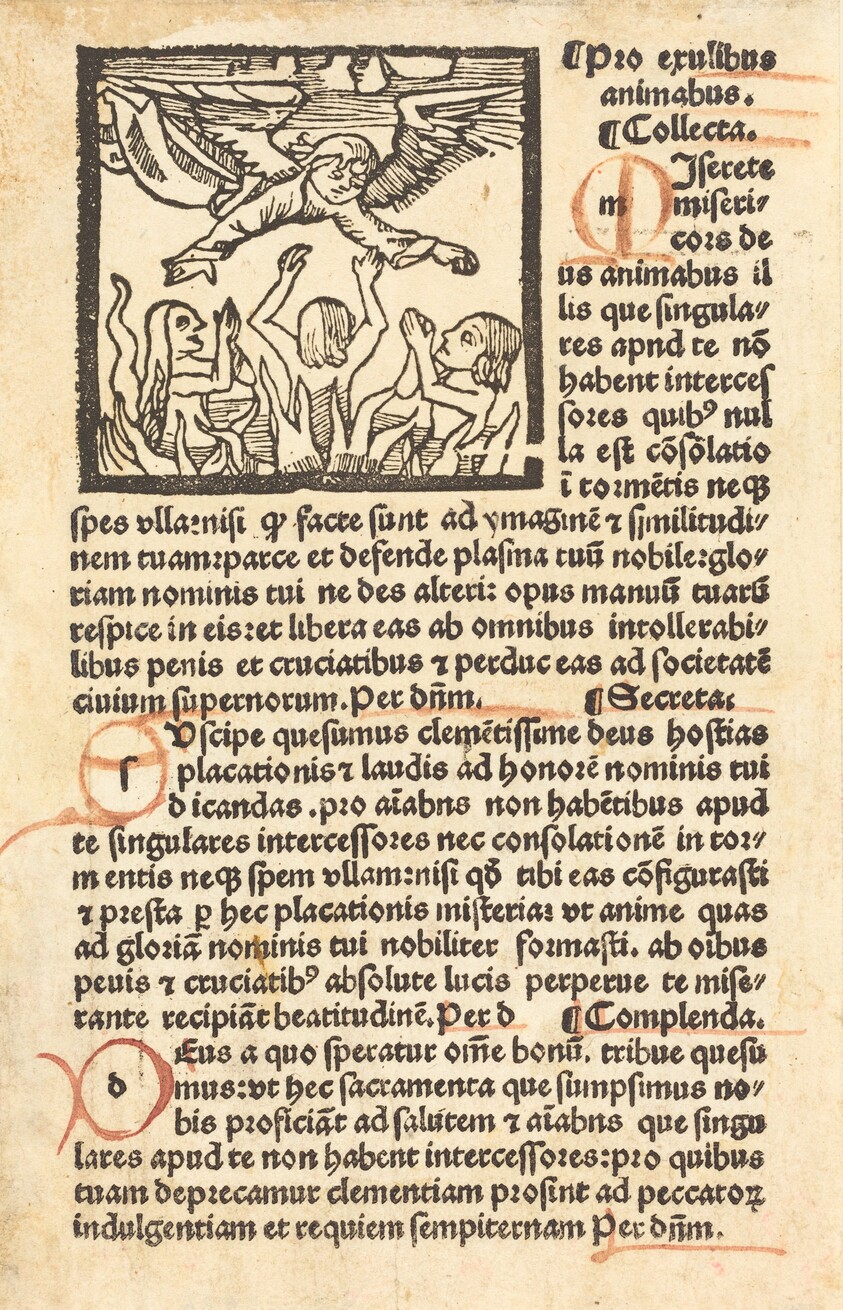 ¶Pro exulibus
animabus.
¶Collecta.
MJserete
m miseri⸗
cors de
us animabus il
lis que singula⸗
res apnd te nō
habent interces
sores quibꝰ nul
la est cōsōlatio
ī tormētis neqꝫ
spes vlla:nisi ꝙ facte sunt ad ymaginē ⁊ similitudi⸗
nem tuam:parce et defende plasma tuū nobile:glo⸗
riam nominis tui ne des alteri: opus manuū tuarū
respice in eis:et libera eas ab omnibus intollerabi⸗
libus penis et cruciatibus ⁊ perduc eas ad societatē
ciuium supernorum.Per dn̄m. ¶Secreta.
s Vscipe quesumus clemētissime deus hostias
placationis⁊ laudis ad honorē nominis tui
dicandas .pro aīabns non habētibus apud
te singulares intercessores nec consolationē in tor⸗
mentis neqꝫ spem vllam:nisi qd̄ tibi eas cōfigurasti
⁊ presta ꝑ hec placationis misteria: vt anime quas
ad gloriā nominis tui nobiliter formasti. ab oībus
penis ⁊ cruciatibꝰ absolute lucis perpetue te mise⸗
rante recipiāt beatitudinē.Per d ¶Complenda.
d Eus a quo speratur om̄e bonū. tribue quesu
mus:vt hec sacramenta que sumpsimus no⸗
bis proficiāt ad salutem ⁊ aīabns que singu
lares apud te non habent intercessores:pro quibus
tuam deprecamur clementiam prosint ad peccatoꝝ
indulgentiam et requiem sempiternam Per dn̄m.